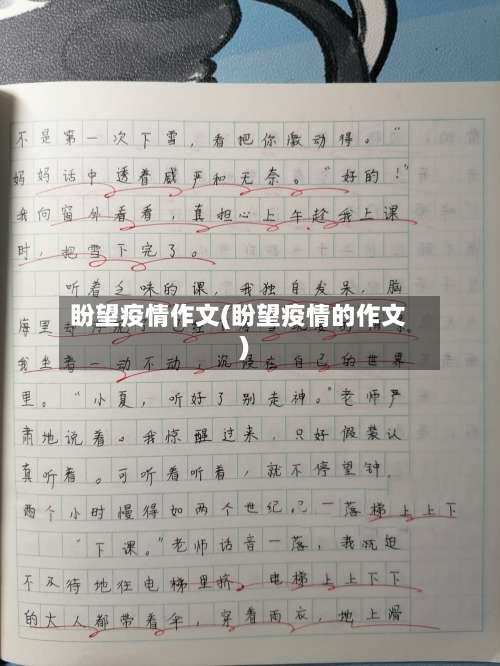 不是第一次下雪，看把你激动得。”
妈妈话中透着威严和无奈。“好的！”
我向窗外看看，真担心上午趁我上课
时，把雪下完了。
听着乏味的课，我独自发呆，脑
海里
盼望疫情作文(盼望疫情的作文
)
我坐着一动不动，沉浸在自己的世界
里。“小夏，听好了别走神。”老师严
肃地说着。我惊醒过来，只好假装认
真听着。可听着听着，就不停望钟，
两个小时慢得如两个世纪。一落梯上上下
“下课。”老师话音一落，我就迫
不及待地往电梯里挤。电梯上上下下
的大人都带着伞，穿着雨衣，地上滑